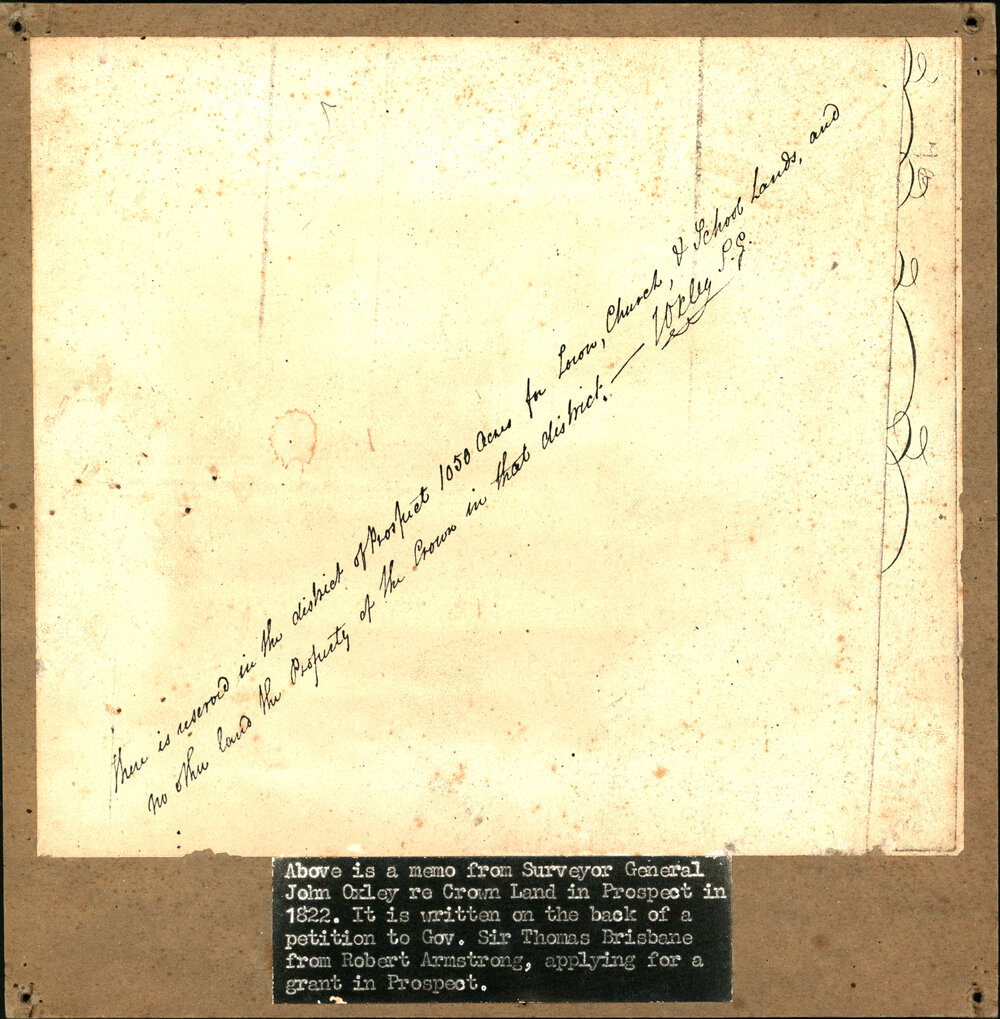 there is reserved in the district of Prospect 1050 Acres for Town, Church, & School Lands, and
no other land the Property of the Crown in that district. — JOxley S.G.
Above is a memo from Surveyor General
John Oxley re Crown Land in Prospect in
1822. It is written on the back of a
petition to Gov. Sir Thomas Brisbane
from Robert Armstrong, applying for a
grant in Prospect.